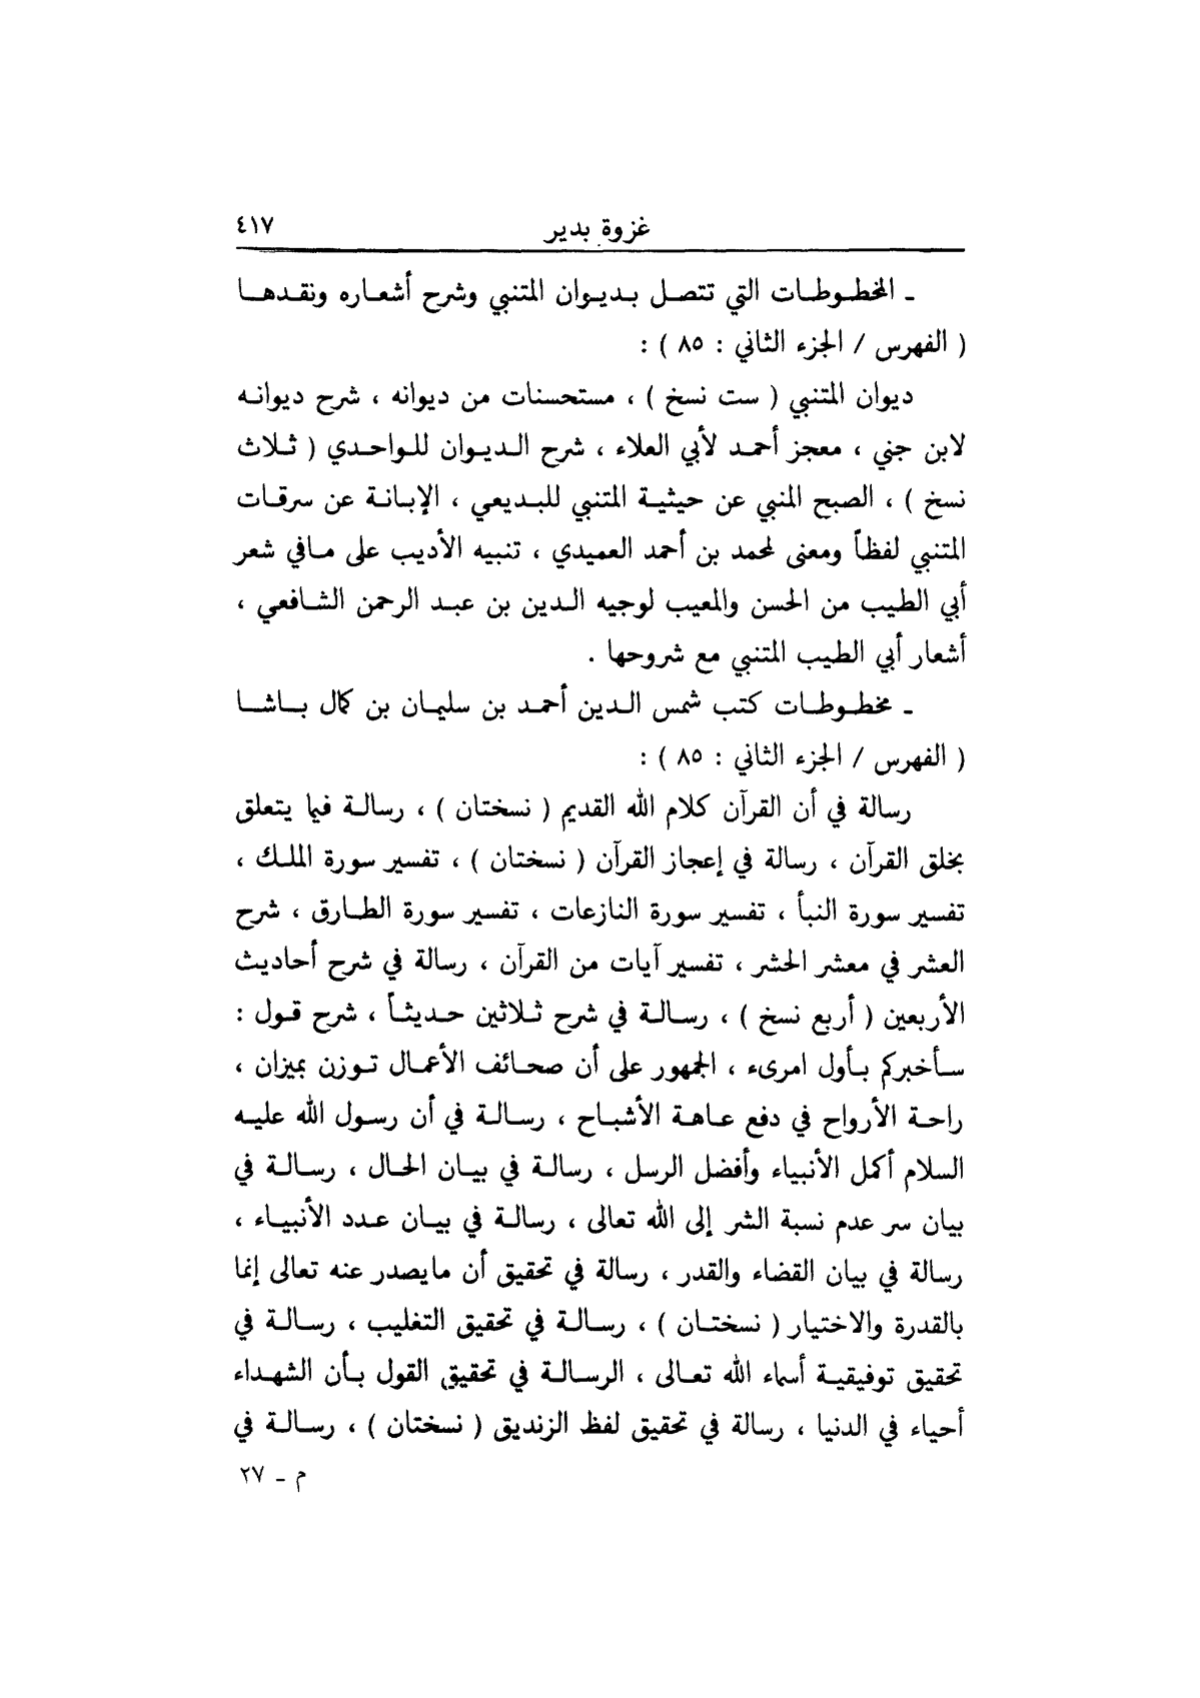 غزوة بدير ٤١٧
ـ المخطوطات التي تتصل بديوان المتنبي وشرح أشعاره ونقدها
( الفهرس / الجزء الثاني : ٨٥ ) :
ديوان المتنبي ( ست نسخ ) ، مستحسنات من ديوانه ، شرح ديوانه
لابن جني ، معجز أحمد لأبي العلاء ، شرح الديوان للواحدي ( ثلاث
نسخ ) ، الصبح المنبي عن حيثية المتنبي للبديعي ، الإبانة عن سرقات
المتنبي لفظاً ومعنى لمحمد بن أحمد العميدي ، تنبيه الأديب على مافي شعر
أبي الطيب من الحسن والمعيب لوجيه الدين بن عبد الرحمن الشافعي ،
أشعار أبي الطيب المتنبي مع شروحها .
ـ مخطوطات كتب شمس الدين أحمد بن سليمان بن كمال باشا
( الفهرس / الجزء الثاني : ٨٥ ) :
رسالة في أن القرآن كلام الله القديم ( نسختان ) ، رسالة فيما يتعلق
بخلق القرآن ، رسالة في إعجاز القرآن ( نسختان ) ، تفسير سورة الملك ،
تفسير سورة النبأ ، تفسير سورة النازعات ، تفسير سورة الطارق ، شرح
العشر في معشر الحشر ، تفسير آيات من القرآن ، رسالة في شرح أحاديث
الأربعين ( أربع نسخ ) ، رسالة في شرح ثلاثين حديثاً ، شرح قول :
سأخبركم بأول امرىء ، الجمهور على أن صحائف الأعمال توزن بميزان ،
راحة الأرواح في دفع عاهة الأشباح ، رسالة في أن رسول الله عليه
السلام أكمل الأنبياء وأفضل الرسل ، رسالة في بيان الحال ، رسالة في
بيان سر عدم نسبة الشر إلى الله تعالى ، رسالة في بيان عدد الأنبياء ،
رسالة في بيان القضاء والقدر ، رسالة في تحقيق أن مايصدر عنه تعالى إنما
بالقدرة والاختيار ( نسختان ) ، رسالة في تحقيق التغليب ، رسالة في
تحقيق توفيقية أسماء الله تعالى ، الرسالة في تحقيق القول بأن الشهداء
أحياء في الدنيا ، رسالة في تحقيق لفظ الزنديق ( نسختان ) ، رسالة في
م ـ ٢٧